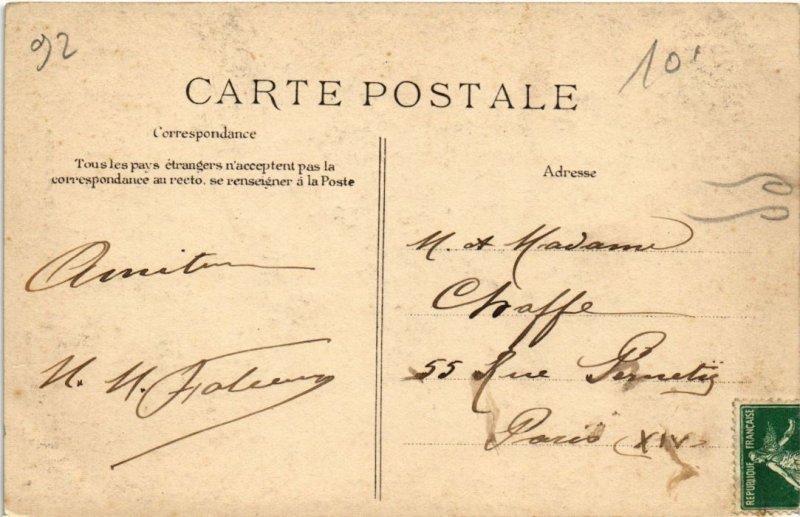 92
10'
CARTE POSTALE
Correspondance
Tous les pays étrangers n'acceptent pas la
correspondance au recto, se renseigner à la Poste
Adresse
M. et Madame
Chaffe
55 Rue Pernety
Paris XIV
RÉPUBLIQUE FRANÇAISE